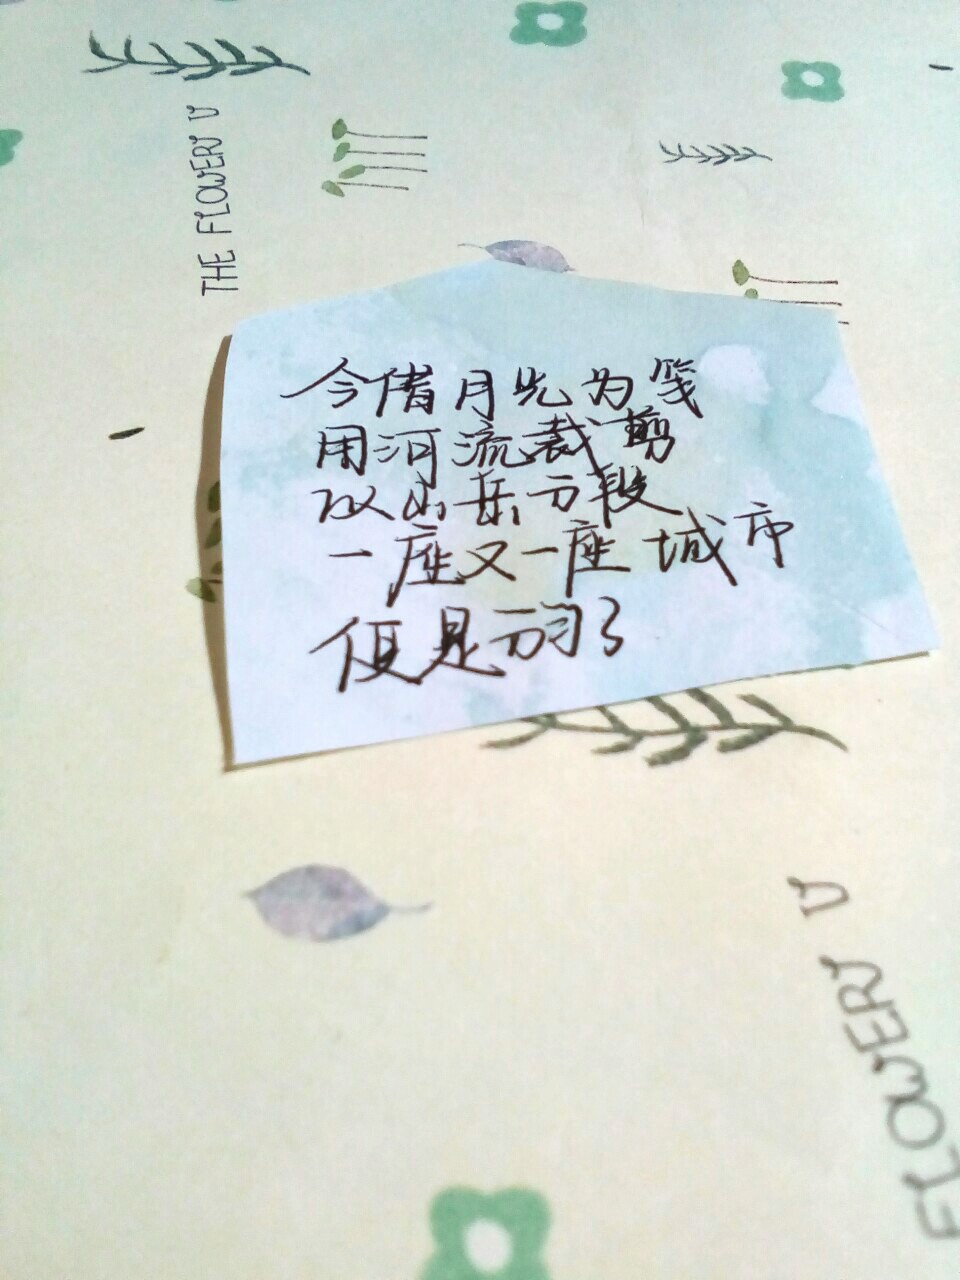 THE FLOWERY V
今借月光为笺
用河流裁剪
以山岳分段
一座又一座城市
便是词了
FLOWERY V